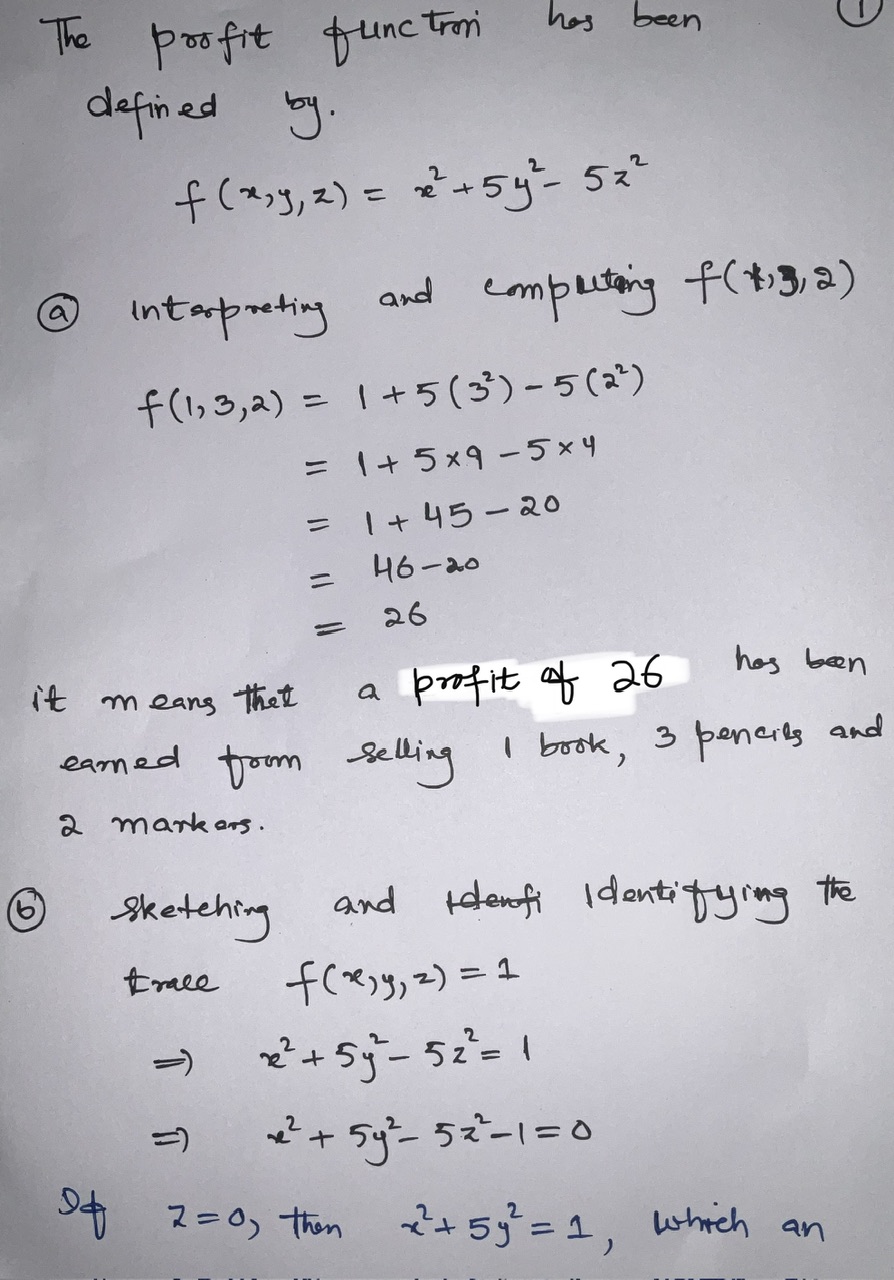 The profit function has been ①
defined by.
f(x,y,z) = x² + 5y² - 5z²
ⓐ Interpreting and computing f(1,3,2)
f(1,3,2) = 1 + 5(3²) - 5(2²)
= 1 + 5×9 - 5×4
= 1 + 45 - 20
= 46 - 20
= 26
it means that a profit of 26 has been
earned from selling 1 book, 3 pencils and
2 markers.
ⓑ sketching and Identifying the
trace f(x,y,z) = 1
⇒ x² + 5y² - 5z² = 1
⇒ x² + 5y² - 5z² - 1 = 0
If z=0, then x² + 5y² = 1, which an